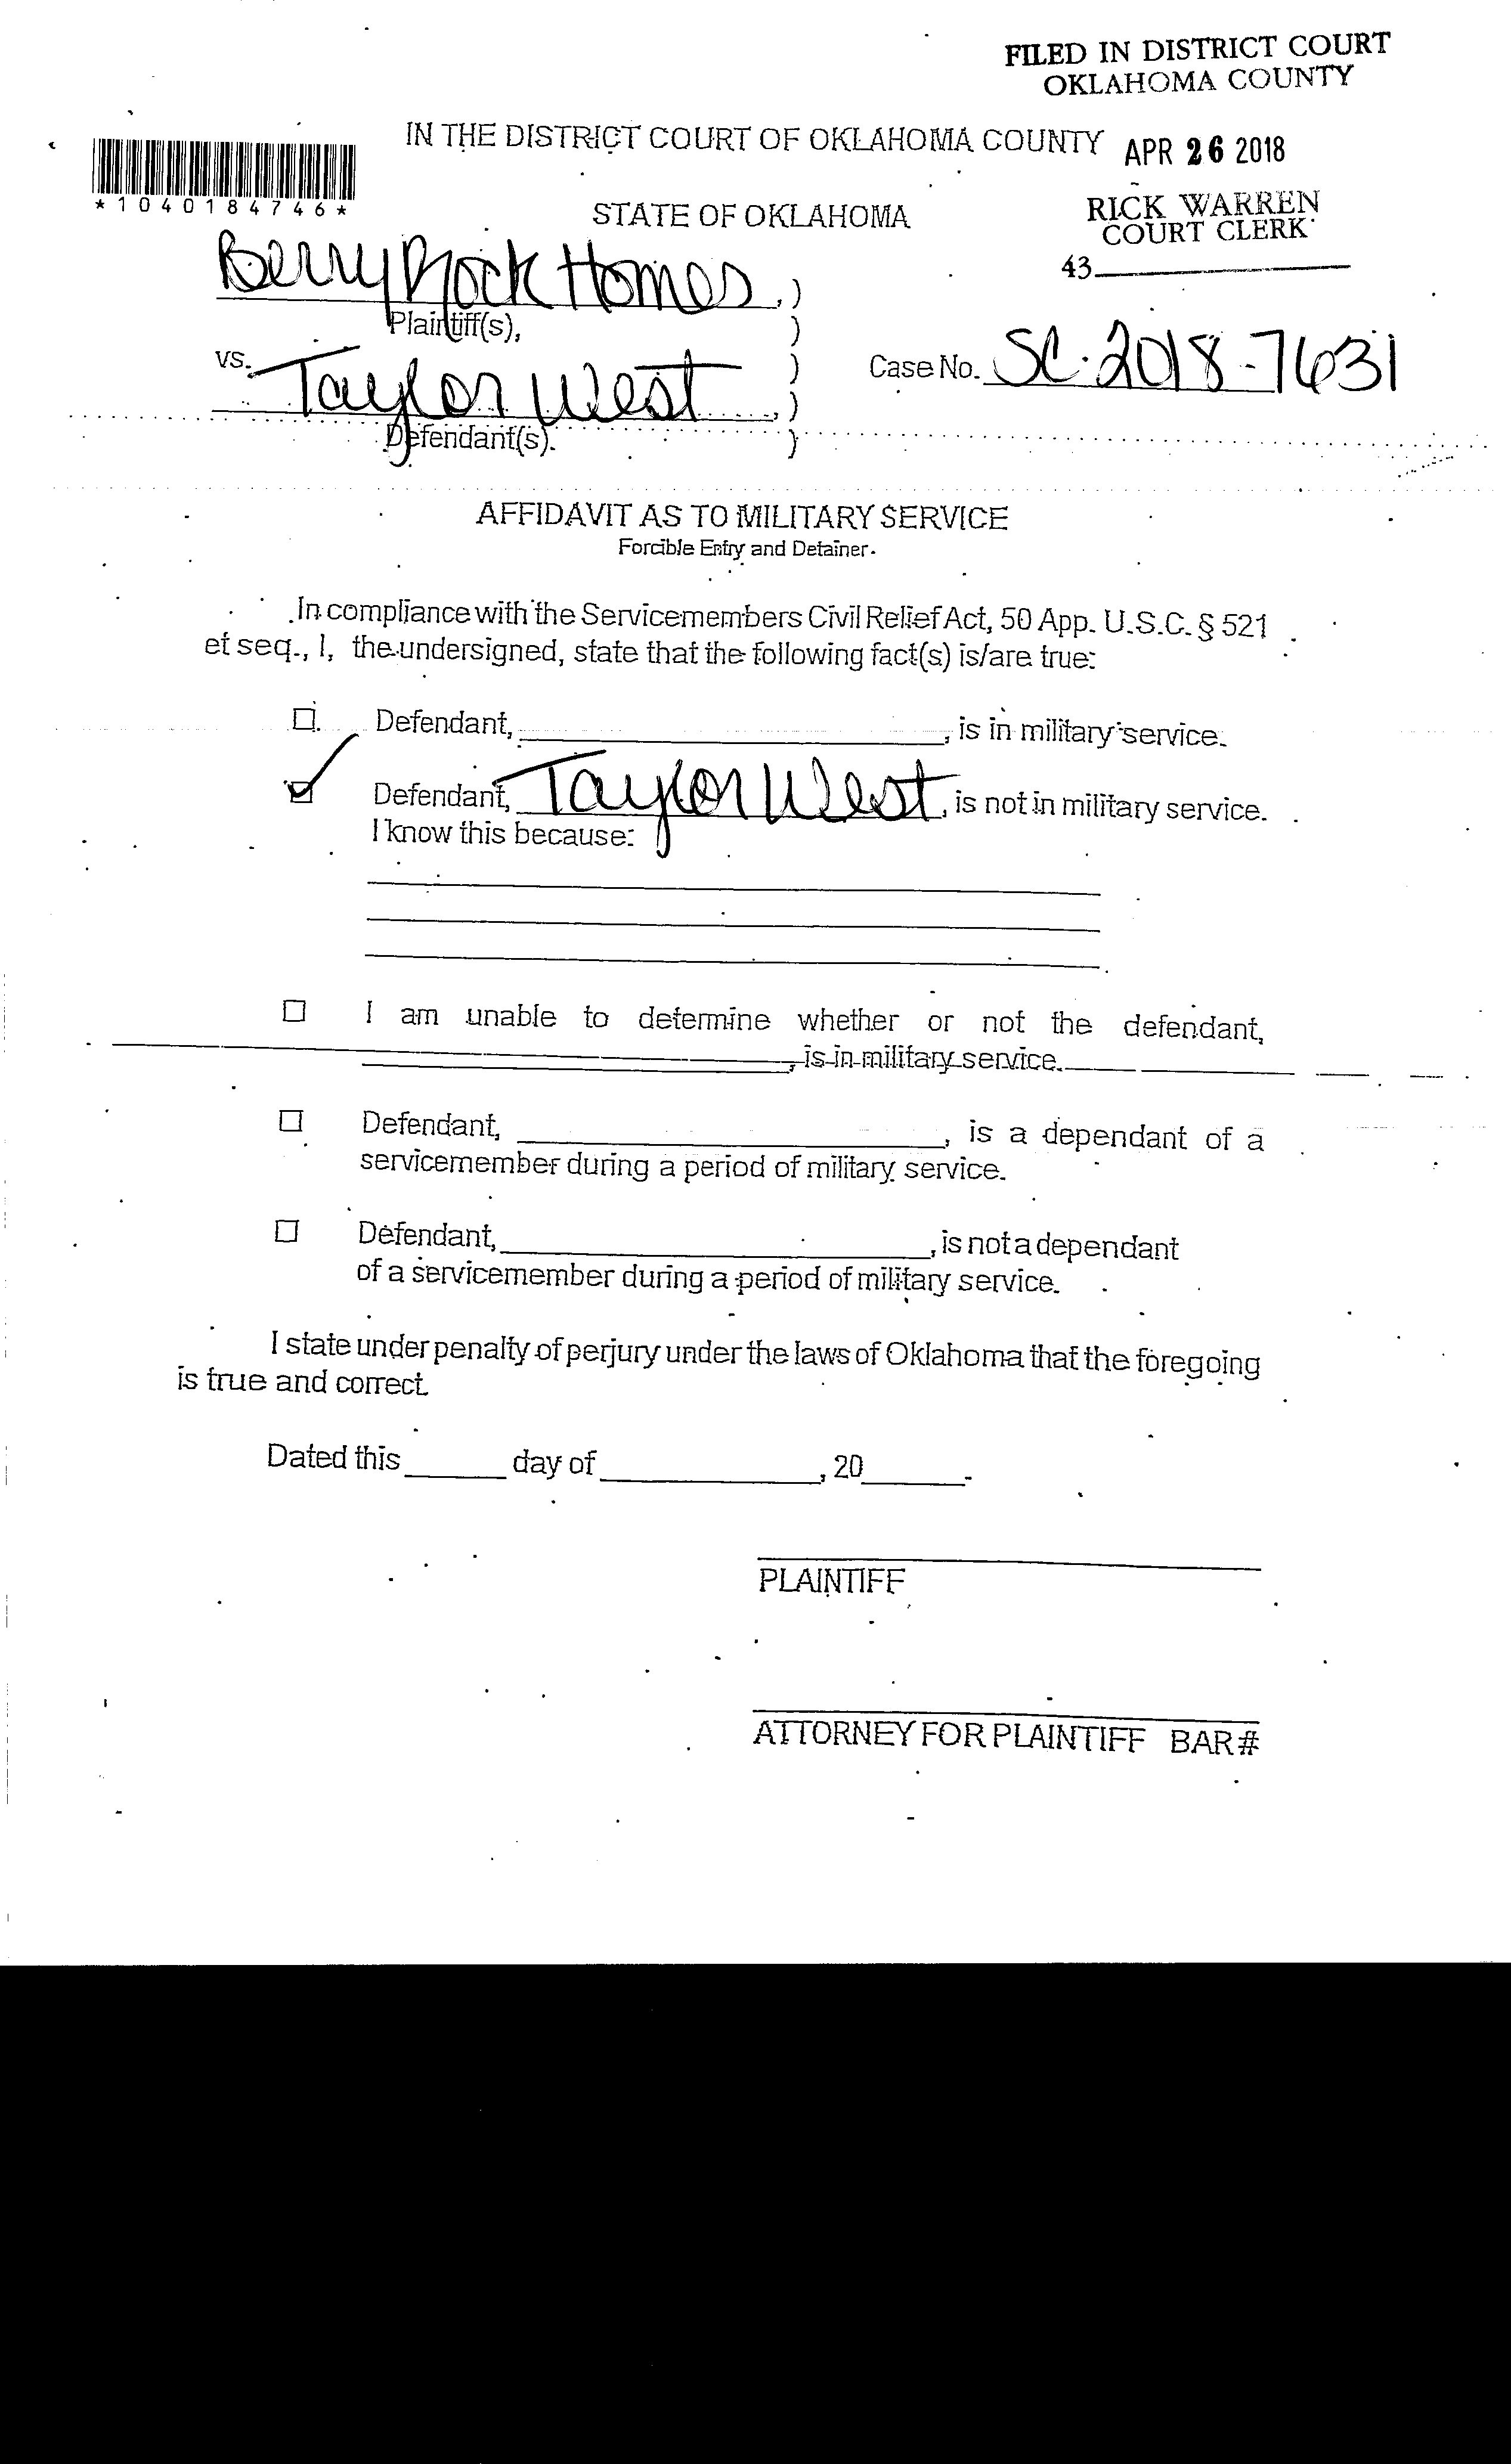 FILED IN DISTRICT COURT
OKLAHOMA COUNTY
IN THE DISTRICT COURT OF OKLAHOMA COUNTY
APR 26 2018
*1040184746*
STATE OF OKLAHOMA
RICK WARREN
COURT CLERK
43
Berry Rock Homes,)
Plaintiff(s), )
vs. Taylor West )
Case No. SC-2018-7631
,)
Defendant(s). )
AFFIDAVIT AS TO MILITARY SERVICE
Forcible Entry and Detainer
In compliance with the Servicemembers Civil Relief Act, 50 App. U.S.C. § 521
et seq., I, the undersigned, state that the following fact(s) is/are true:
☐ Defendant, , is in military service.
☑ Defendant, Taylor West, is not in military service.
I know this because:
☐ I am unable to determine whether or not the defendant,
, is in military service.
☐ Defendant, , is a dependant of a
servicemember during a period of military service.
☐ Defendant, , is not a dependant
of a servicemember during a period of military service.
I state under penalty of perjury under the laws of Oklahoma that the foregoing
is true and correct.
Dated this day of , 20 .
PLAINTIFF
ATTORNEY FOR PLAINTIFF BAR#